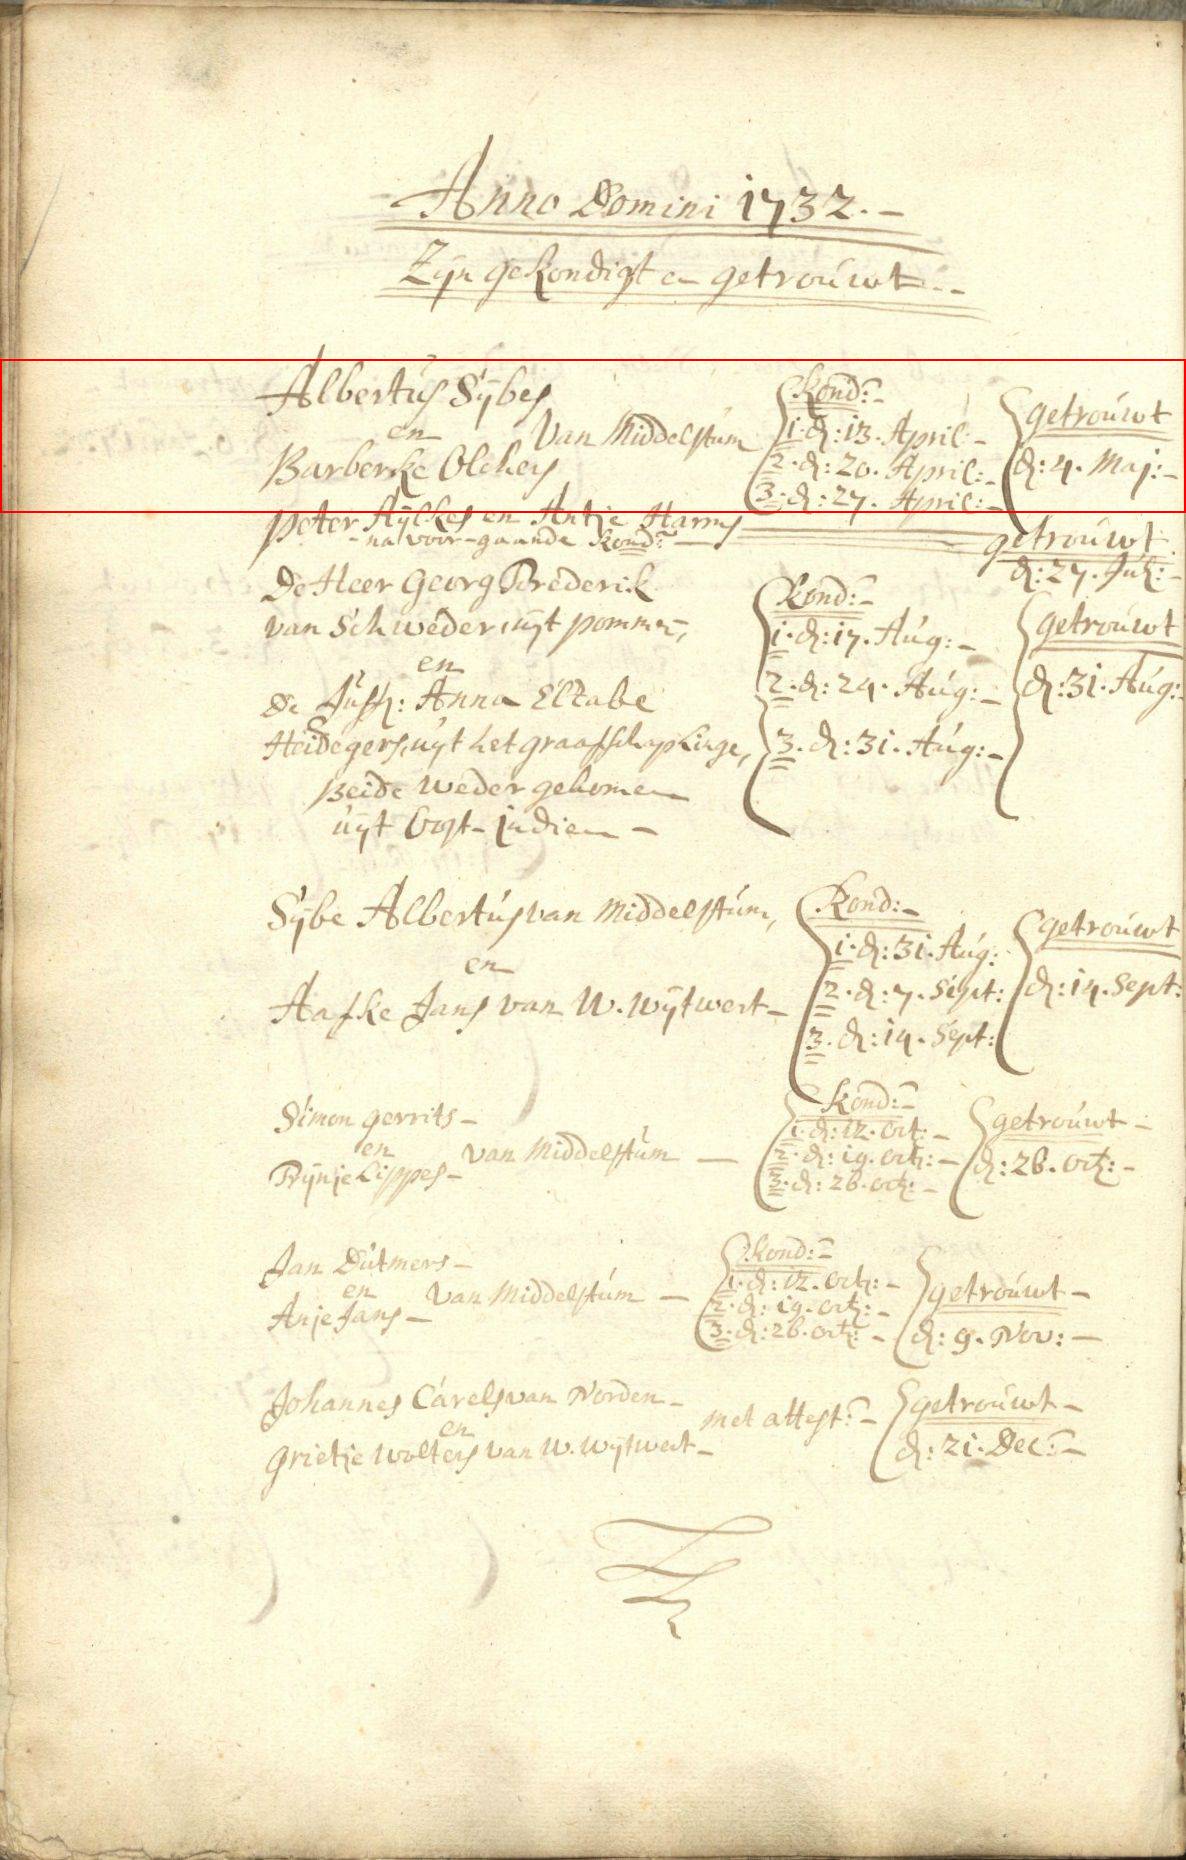 Anno Domini 1732.-
Zijn gekondigt en getrouwt.-
Albertus Sijbes
en
Barberke Olchers
van Middelstum
Kond:-
1. d: 13. April -
2. d: 20. April: -
3. d: 27. April: -
getrouwt
d: 4. Maj: -
peter Aijlkes en Antje Harms
- na voor-gaande Kond: -
getrouwt
d: 27. Jul: -
De Heer Georg Brederik
van Schweder, uijt pommer,
en
De Juff: Anna Eltabe
Heidegers, uijt het graafschap Linge,
Beide weder gekomen
uijt Oost-Indien -
Kond: -
1. d: 17. Aug: -
2. d: 24. Aug: -
3. d: 31. Aug: -
getrouwt
d: 31. Aug:
Sijbe Albertus van Middelstum,
en
Aafke Jans van W. wijtwert -
Kond: -
1. d: 31. Aug:
2. d: 7. Sept:
3. d: 14. Sept:
getrouwt
d: 14. Sept:
Simon gerrits -
en
Trijnje Lippes -
van Middelstum -
Kond: -
1. d: 12. Oct: -
2. d: 19. Oct: -
3. d: 26. Oct: -
getrouwt -
d: 26. Oct: -
Jan Dutmers -
en
Anje Jans -
van Middelstum -
Kond: -
1. d: 12. Oct: -
2. d: 19. Oct: -
3. d: 26. Oct: -
getrouwt -
d: 9. Nov: -
Johannes Carels van Norden -
en
Grietje Wolters van W. Wijtwert -
met attest: -
getrouwt -
d: 21. Dec: -